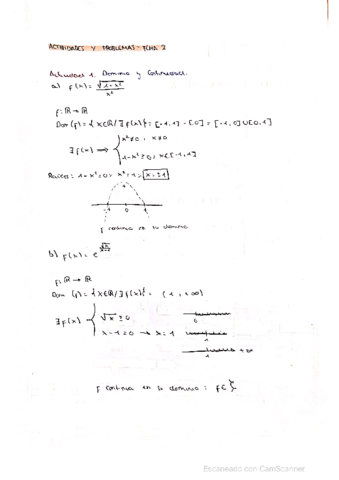 ACTIVIDADES Y PROBLEMAS - TEMA 2
Actividad 1. Dominio y Continuidad.
a) f(x) = √(1-x²) / x²
f: ℝ → ℝ
Dom (f) = { x∈ℝ / ∃ f(x) } = [-1, 1] - [0] = [-1, 0) ∪ (0, 1]
∃ f(x) ⟹ { x² ≠ 0 : x ≠ 0
1-x² ≥ 0 : x∈[-1, 1]
Raíces: 1-x² = 0 ; x² = 1 ; x = ±1
+
-1 0 1
f continua en su dominio
b) f(x) = e
f: ℝ → ℝ
Dom (f) = { x∈ℝ / ∃ f(x) } = (1, +∞)
∃ f(x) { √x ≥ 0
0
x - 1 = 0 → x = 1
1
1 +∞
f continua en su dominio : f∈ }
Escaneado con CamScanner